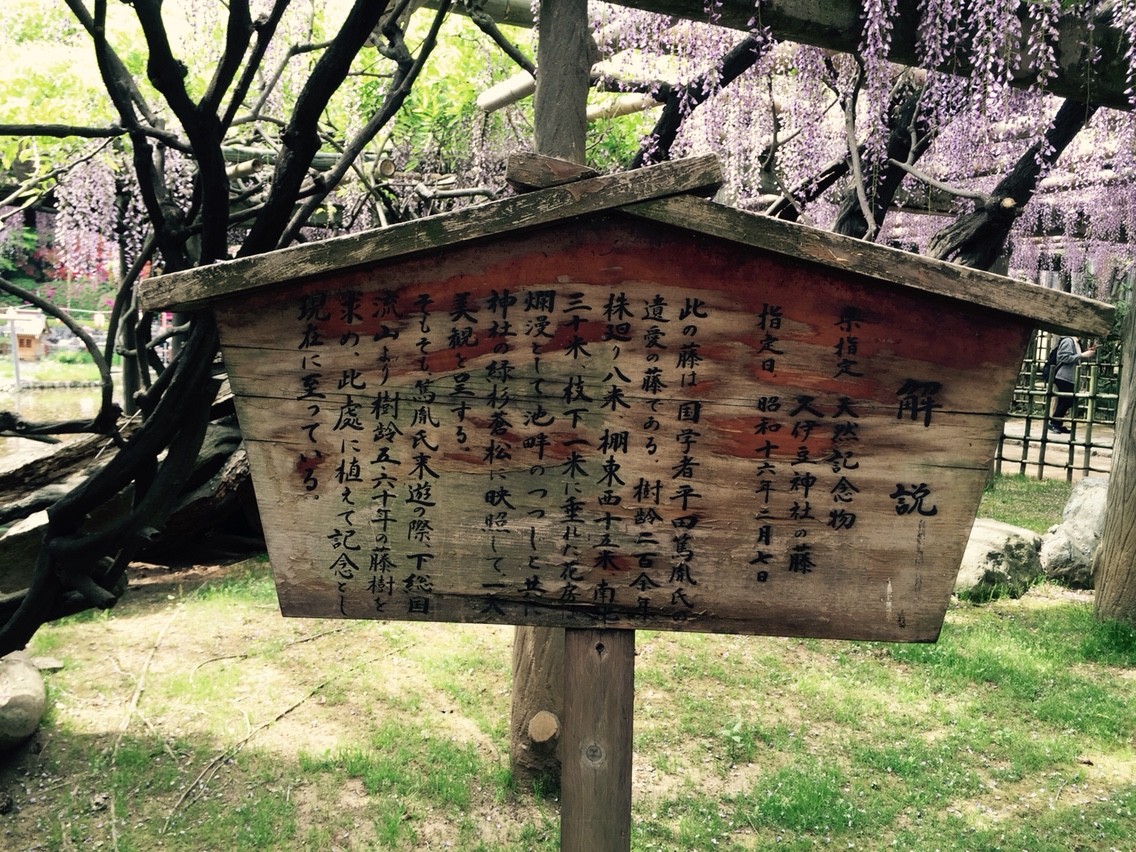 解説
県指定 天然記念物
久伊豆神社の藤
指定日 昭和十六年三月七日
此の藤は国学者平田篤胤氏の
遺愛の藤である。樹齢二百余年
株廻り八米 棚東西十五米 南北
三十米、枝下一米に垂れた花房は
爛漫として池畔のつつじと共に
神社の緑杉蒼松に映照して、一大
美観を呈する。
そもそも篤胤氏来遊の際、下総国
流山より樹齢五、六十年の藤樹を
求め、此處に植えて記念とし
現在に至っている。